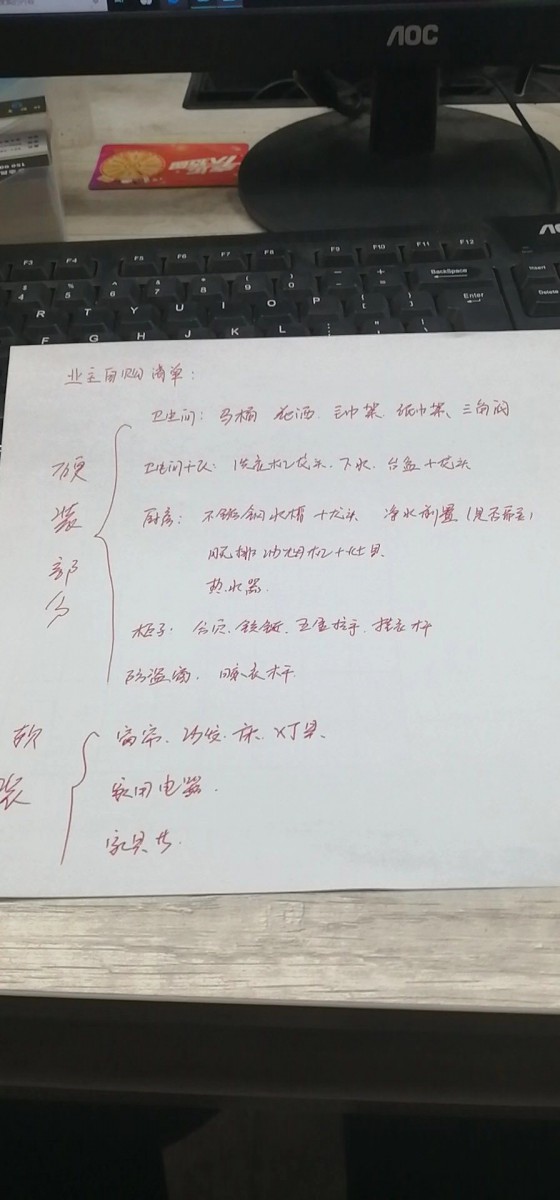 AOC
AOC
F3 F4 F5 F6 F7 F8 F9 F10 F11 F12
BackSpace Insert
Enter Delete
R T Y U I O P
F G H J K L
业主自购清单：
硬装部分
卫生间：马桶 花洒 毛巾架 纸巾架、三角阀
卫生间+人：洗衣机龙头、下水、台盆+龙头
厨房：不锈钢水槽+龙头 净水 (是否需要)
油烟机+灶具
热水器
柜子：合页、铰链、五金拉手、挂衣杆
防盗窗、晾衣杆
软装
窗帘、沙发、床、灯具、
家用电器.
家具等.